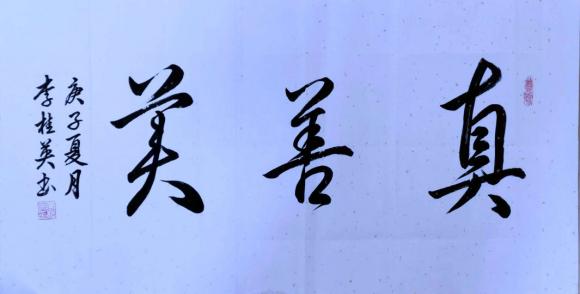 真善美
庚子夏月
李桂英书